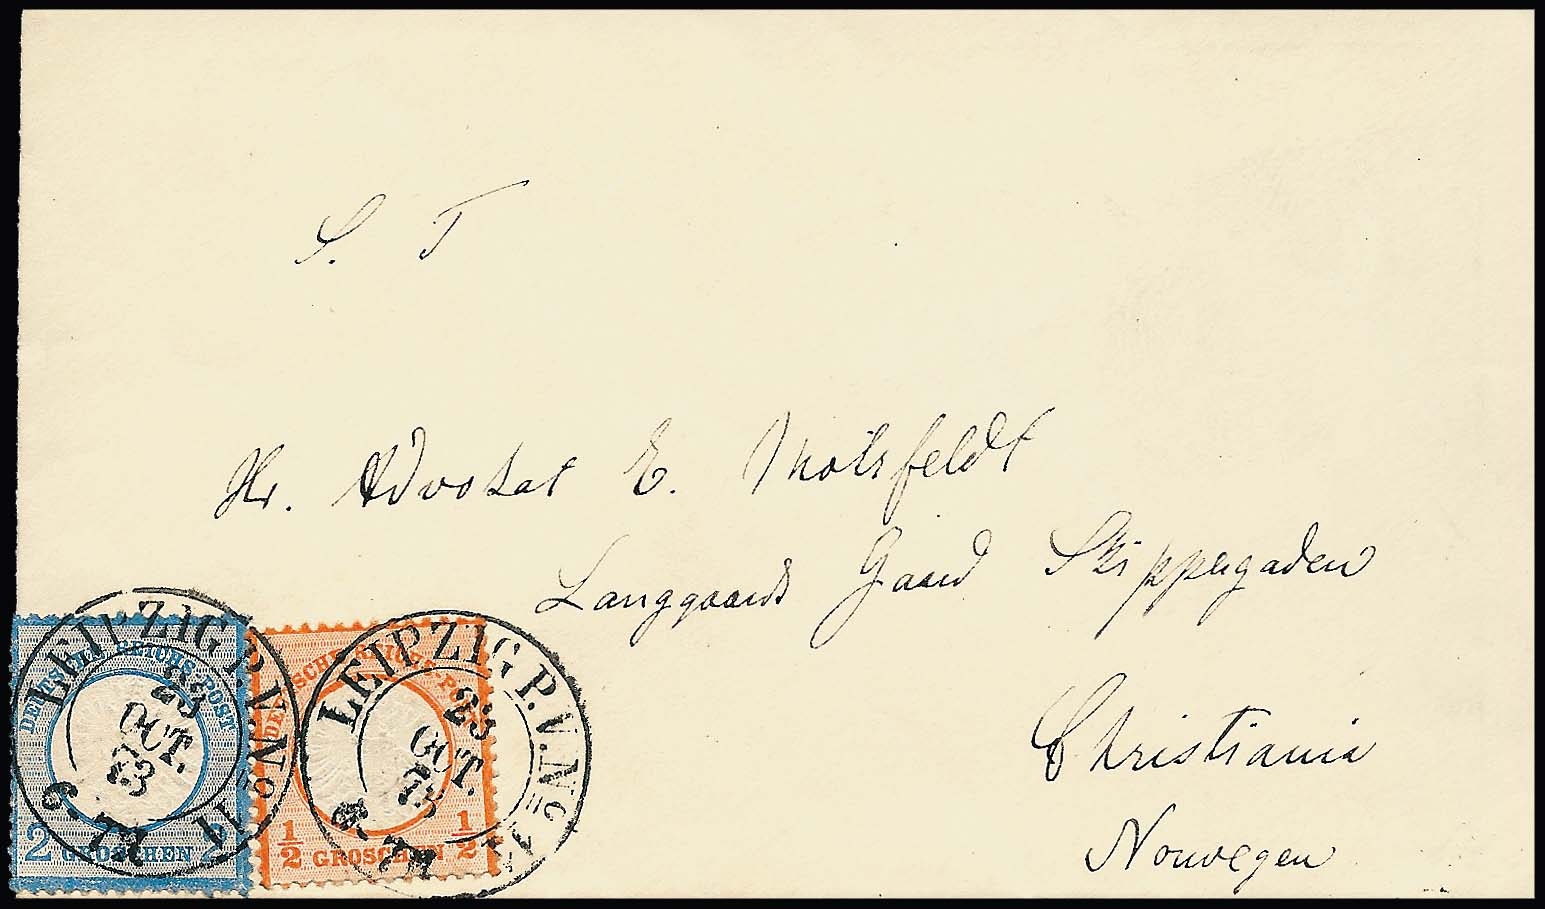 S. T
Hr. Advokat E. Motzfeldt
Langgaards Gaard Skippergaden
Christiania
Norwegen
LEIPZIG P.V. No 11
23
OCT.
73
DEUTSCHE REICHS-POST
2 GROSCHEN 2
LEIPZIG P.V. No 1
23
OCT.
DEUTSCHE REICHS-POST
1/2 GROSCHEN 1/2